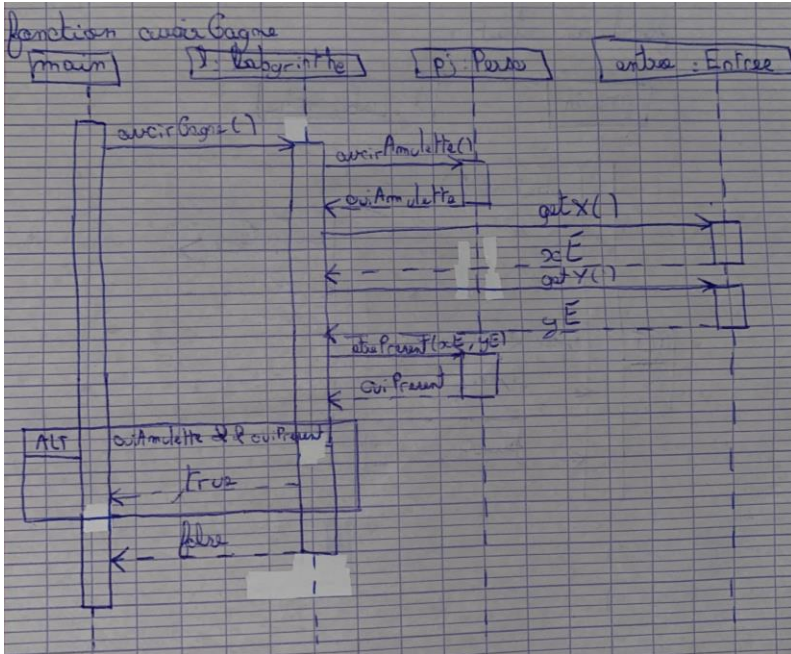 fonction avoirGagne
main
l : Labyrinthe
pj : Perso
entree : Entree
avoirGagne()
avoirAmulette()
ouiAmulette
getX()
xE
getY()
yE
etrePresent(xE, yE)
ouiPresent
ALT
ouiAmulette && ouiPresent
true
false